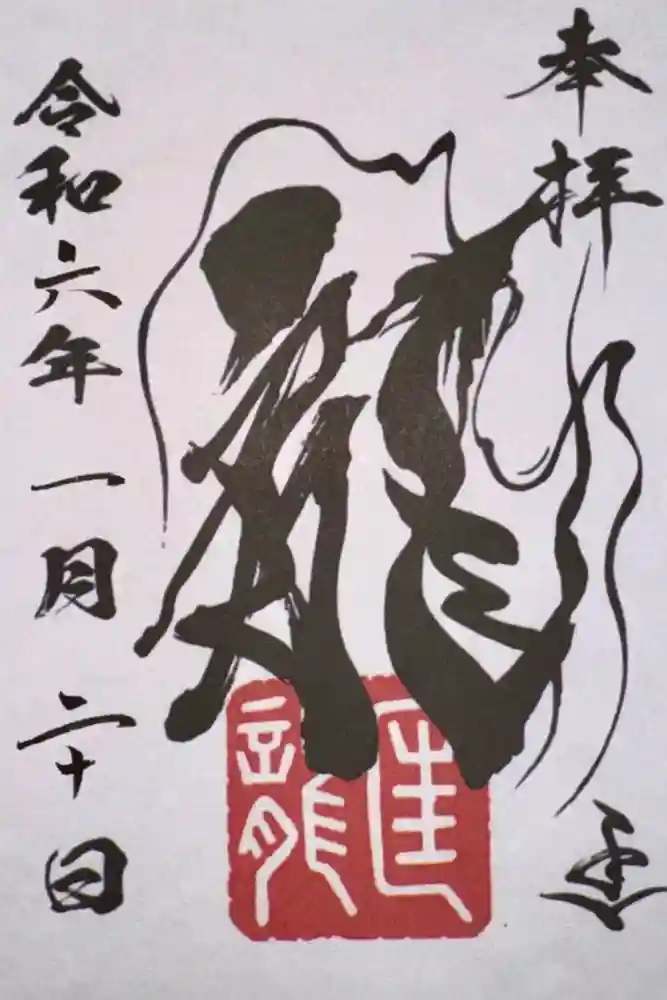 奉拝
龍
令和六年一月二十日